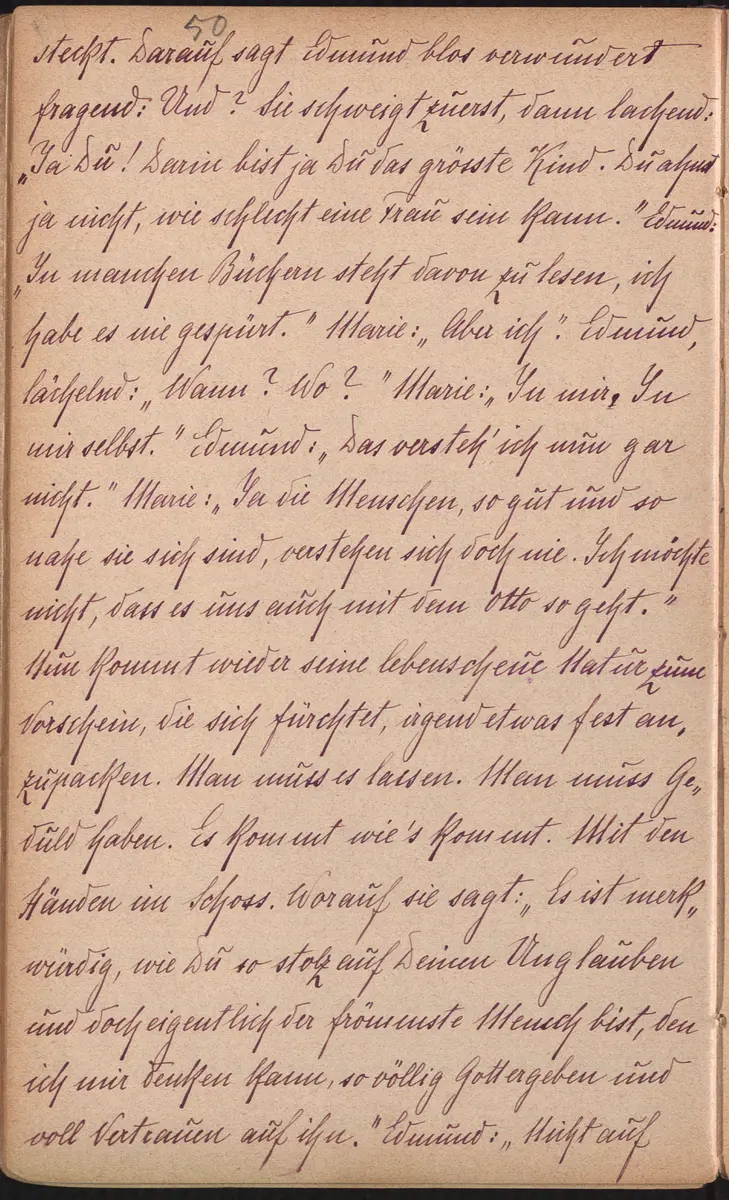 50
steckt. Darauf sagt Edmund blos verwundert
fragend: Und? Sie schweigt zuerst, dann lachend:
„Ja Du! Darin bist ja Du das grösste Kind. Du ahnst
ja nicht, wie schlecht eine Frau sein kann." Edmund:
„In manchen Büchern steht davon zu lesen, ich
habe es nie gespürt." Marie: „Aber ich". Edmund,
lächelnd: „Wann? Wo?" Marie: „In mir. In
mir selbst." Edmund: „Das versteh' ich nun gar
nicht." Marie: „Ja die Menschen, so gut und so
nahe sie sich sind, verstehen sich doch nie. Ich möchte
nicht, dass es uns auch mit dem Otto so geht."
Nun kommt wieder seine lebensscheue Natur zum
Vorschein, die sich fürchtet, irgend etwas fest an„
zupacken. Man muss es lassen. Man muss Ge„
duld haben. Es kommt wie's kommt. Mit den
Händen im Schoss. Worauf sie sagt: „Es ist merk„
würdig, wie Du so stolz auf Deinen Unglauben
und doch eigentlich der frömmste Mensch bist, den
ich mir denken kann, so völlig Gottergeben und
voll Vertrauen auf ihn." Edmund: „Nicht auf